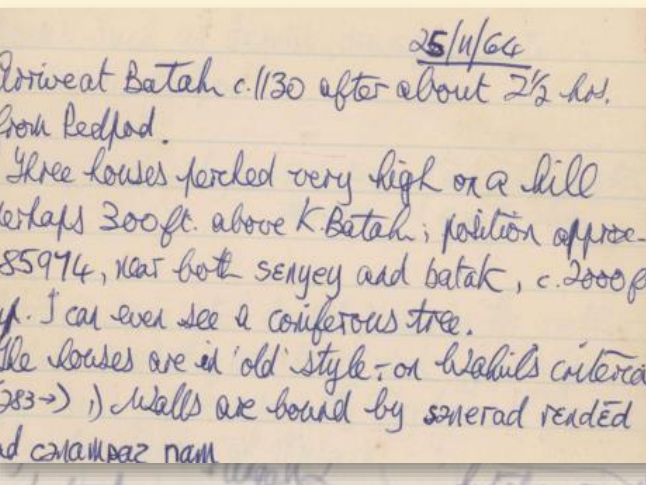 25/11/64
Arrive at Batah c.1130 after about 2½ hrs.
from Pedpod.
Three houses perched very high on a hill
perhaps 300ft. above K.Batah; position approx-
85974, near both senyey and batak, c.2000f
up. I can even see a coniferous tree.
The houses are in 'old' style - on Wahil's criteria
(283→) 1) Walls are bound by
nam